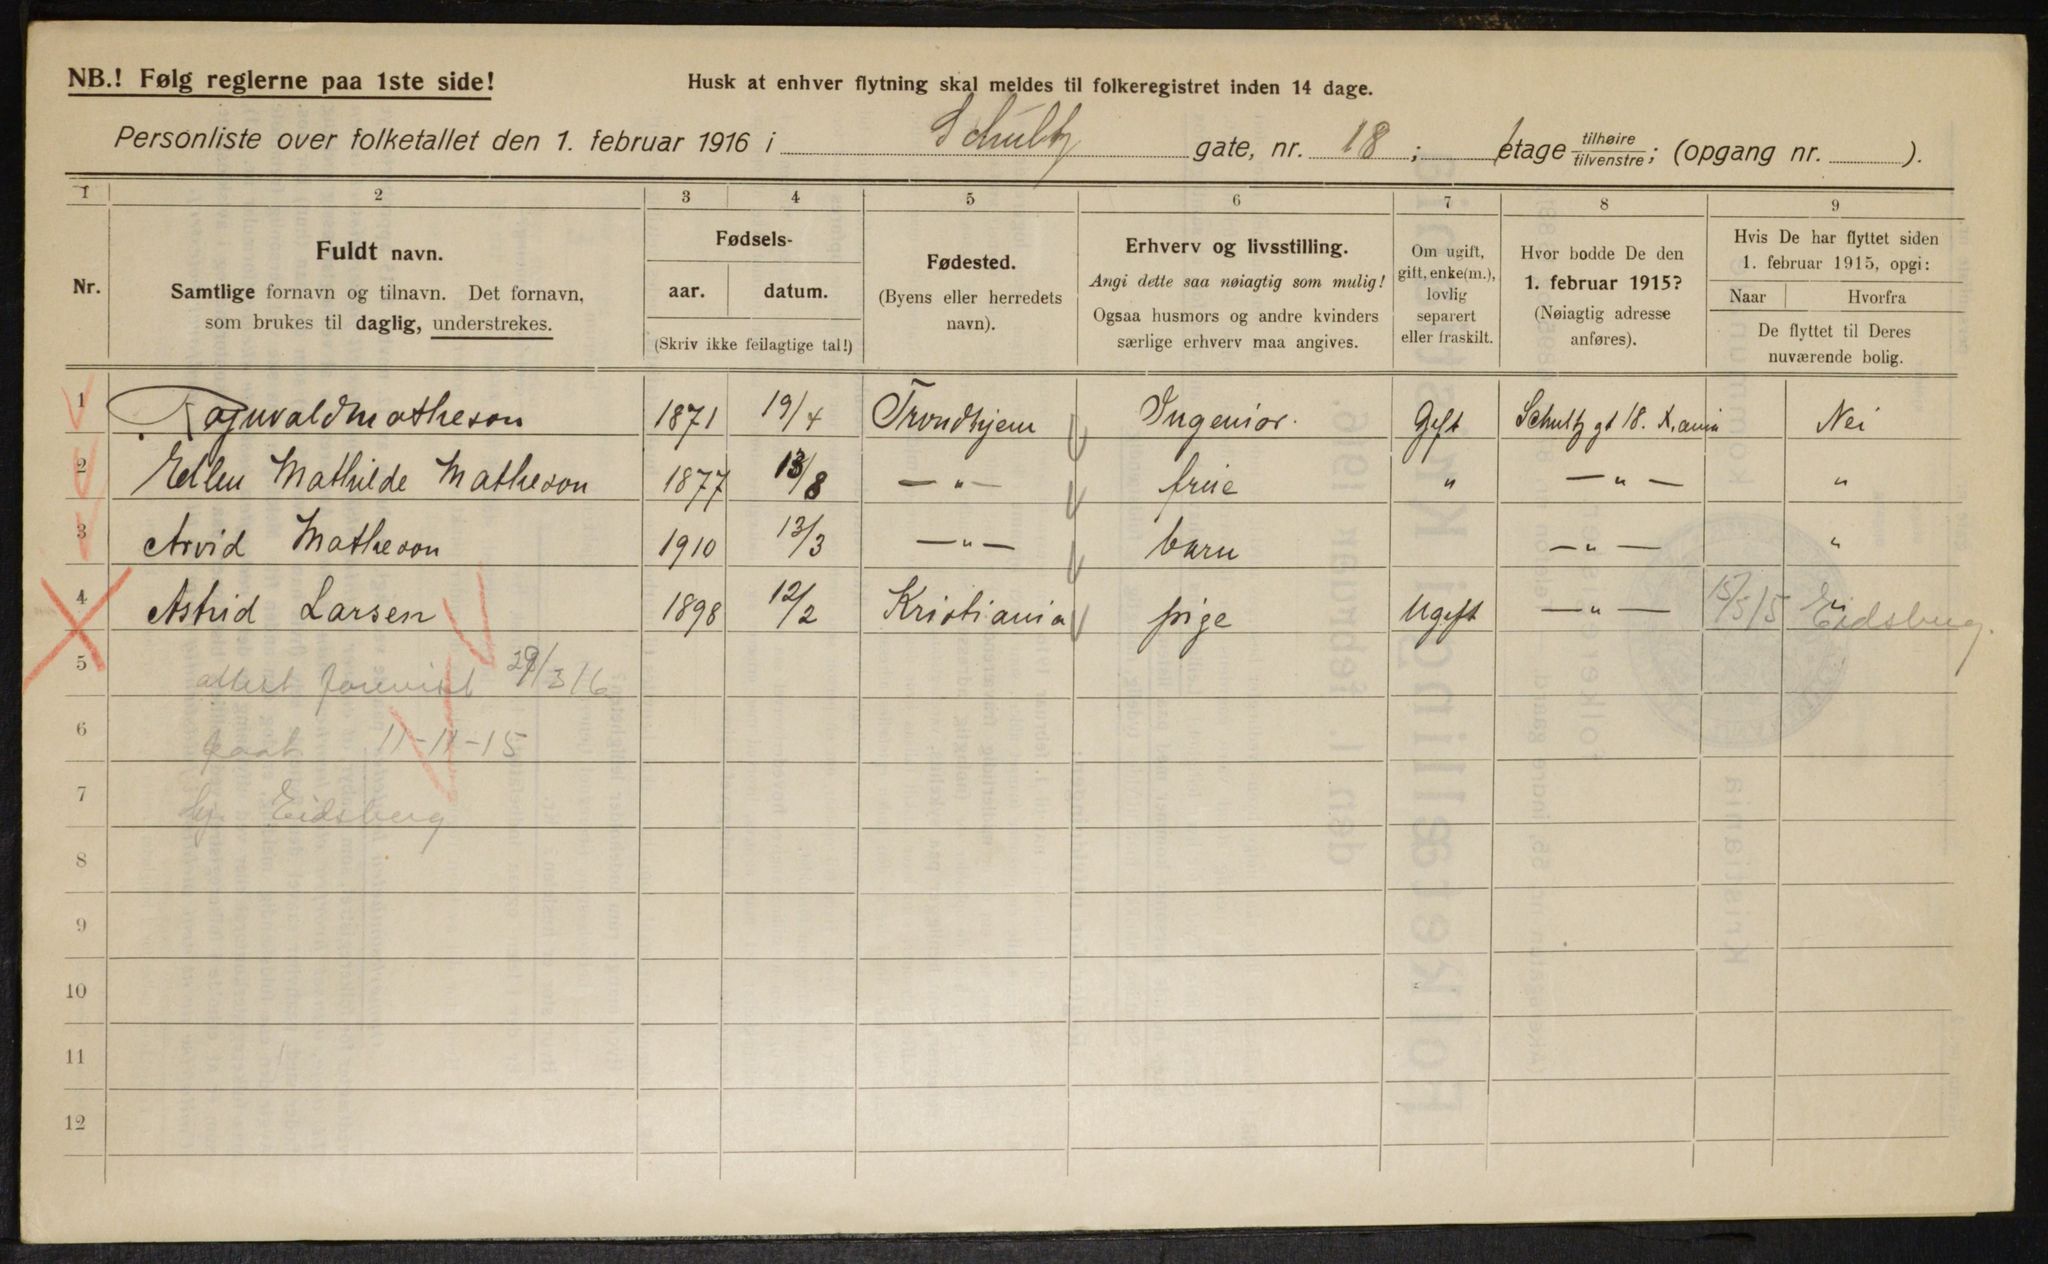 NB.! Følg reglerne paa 1ste side!
Husk at enhver flytning skal meldes til folkeregistret inden 14 dage.
Personliste over folketallet den 1. februar 1916 i Schultz gate, nr. 18; 1 etage tilhøire/tilvenstre; (opgang nr. ).
1 2 3 4 5 6 7 8 9
Nr.
Fuldt navn.
Samtlige fornavn og tilnavn. Det fornavn,
som brukes til daglig, understrekes.
Fødsels-
aar. datum.
(Skriv ikke feilagtige tal!)
Fødested.
(Byens eller herredets
navn).
Erhverv og livsstilling.
Angi dette saa nøiagtig som mulig!
Ogsaa husmors og andre kvinders
særlige erhverv maa angives.
Om ugift,
gift, enke(m.),
lovlig
separert
eller fraskilt.
Hvor bodde De den
1. februar 1915?
(Nøiagtig adresse
anføres).
Hvis De har flyttet siden
1. februar 1915, opgi:
Naar Hvorfra
De flyttet til Deres
nuværende bolig.
1 Ragnvald Matheson 1871 19/4 Trondhjem Ingeniør. Gift Schultz gt 18. K,ania Nei
2 Ellen Mathilde Matheson 1877 13/8 — „ — frue „ — „ — „
3 Arvid Matheson 1910 13/3 — „ — barn — „ — „
4 Astrid Larsen 1898 12/2 Kristiania pige Ugift — „ — 15/5 15 Eidsberg.
5 attest forevist 29/3 16
6 11-11-15
7 Eidsberg
8
9
10
11
12